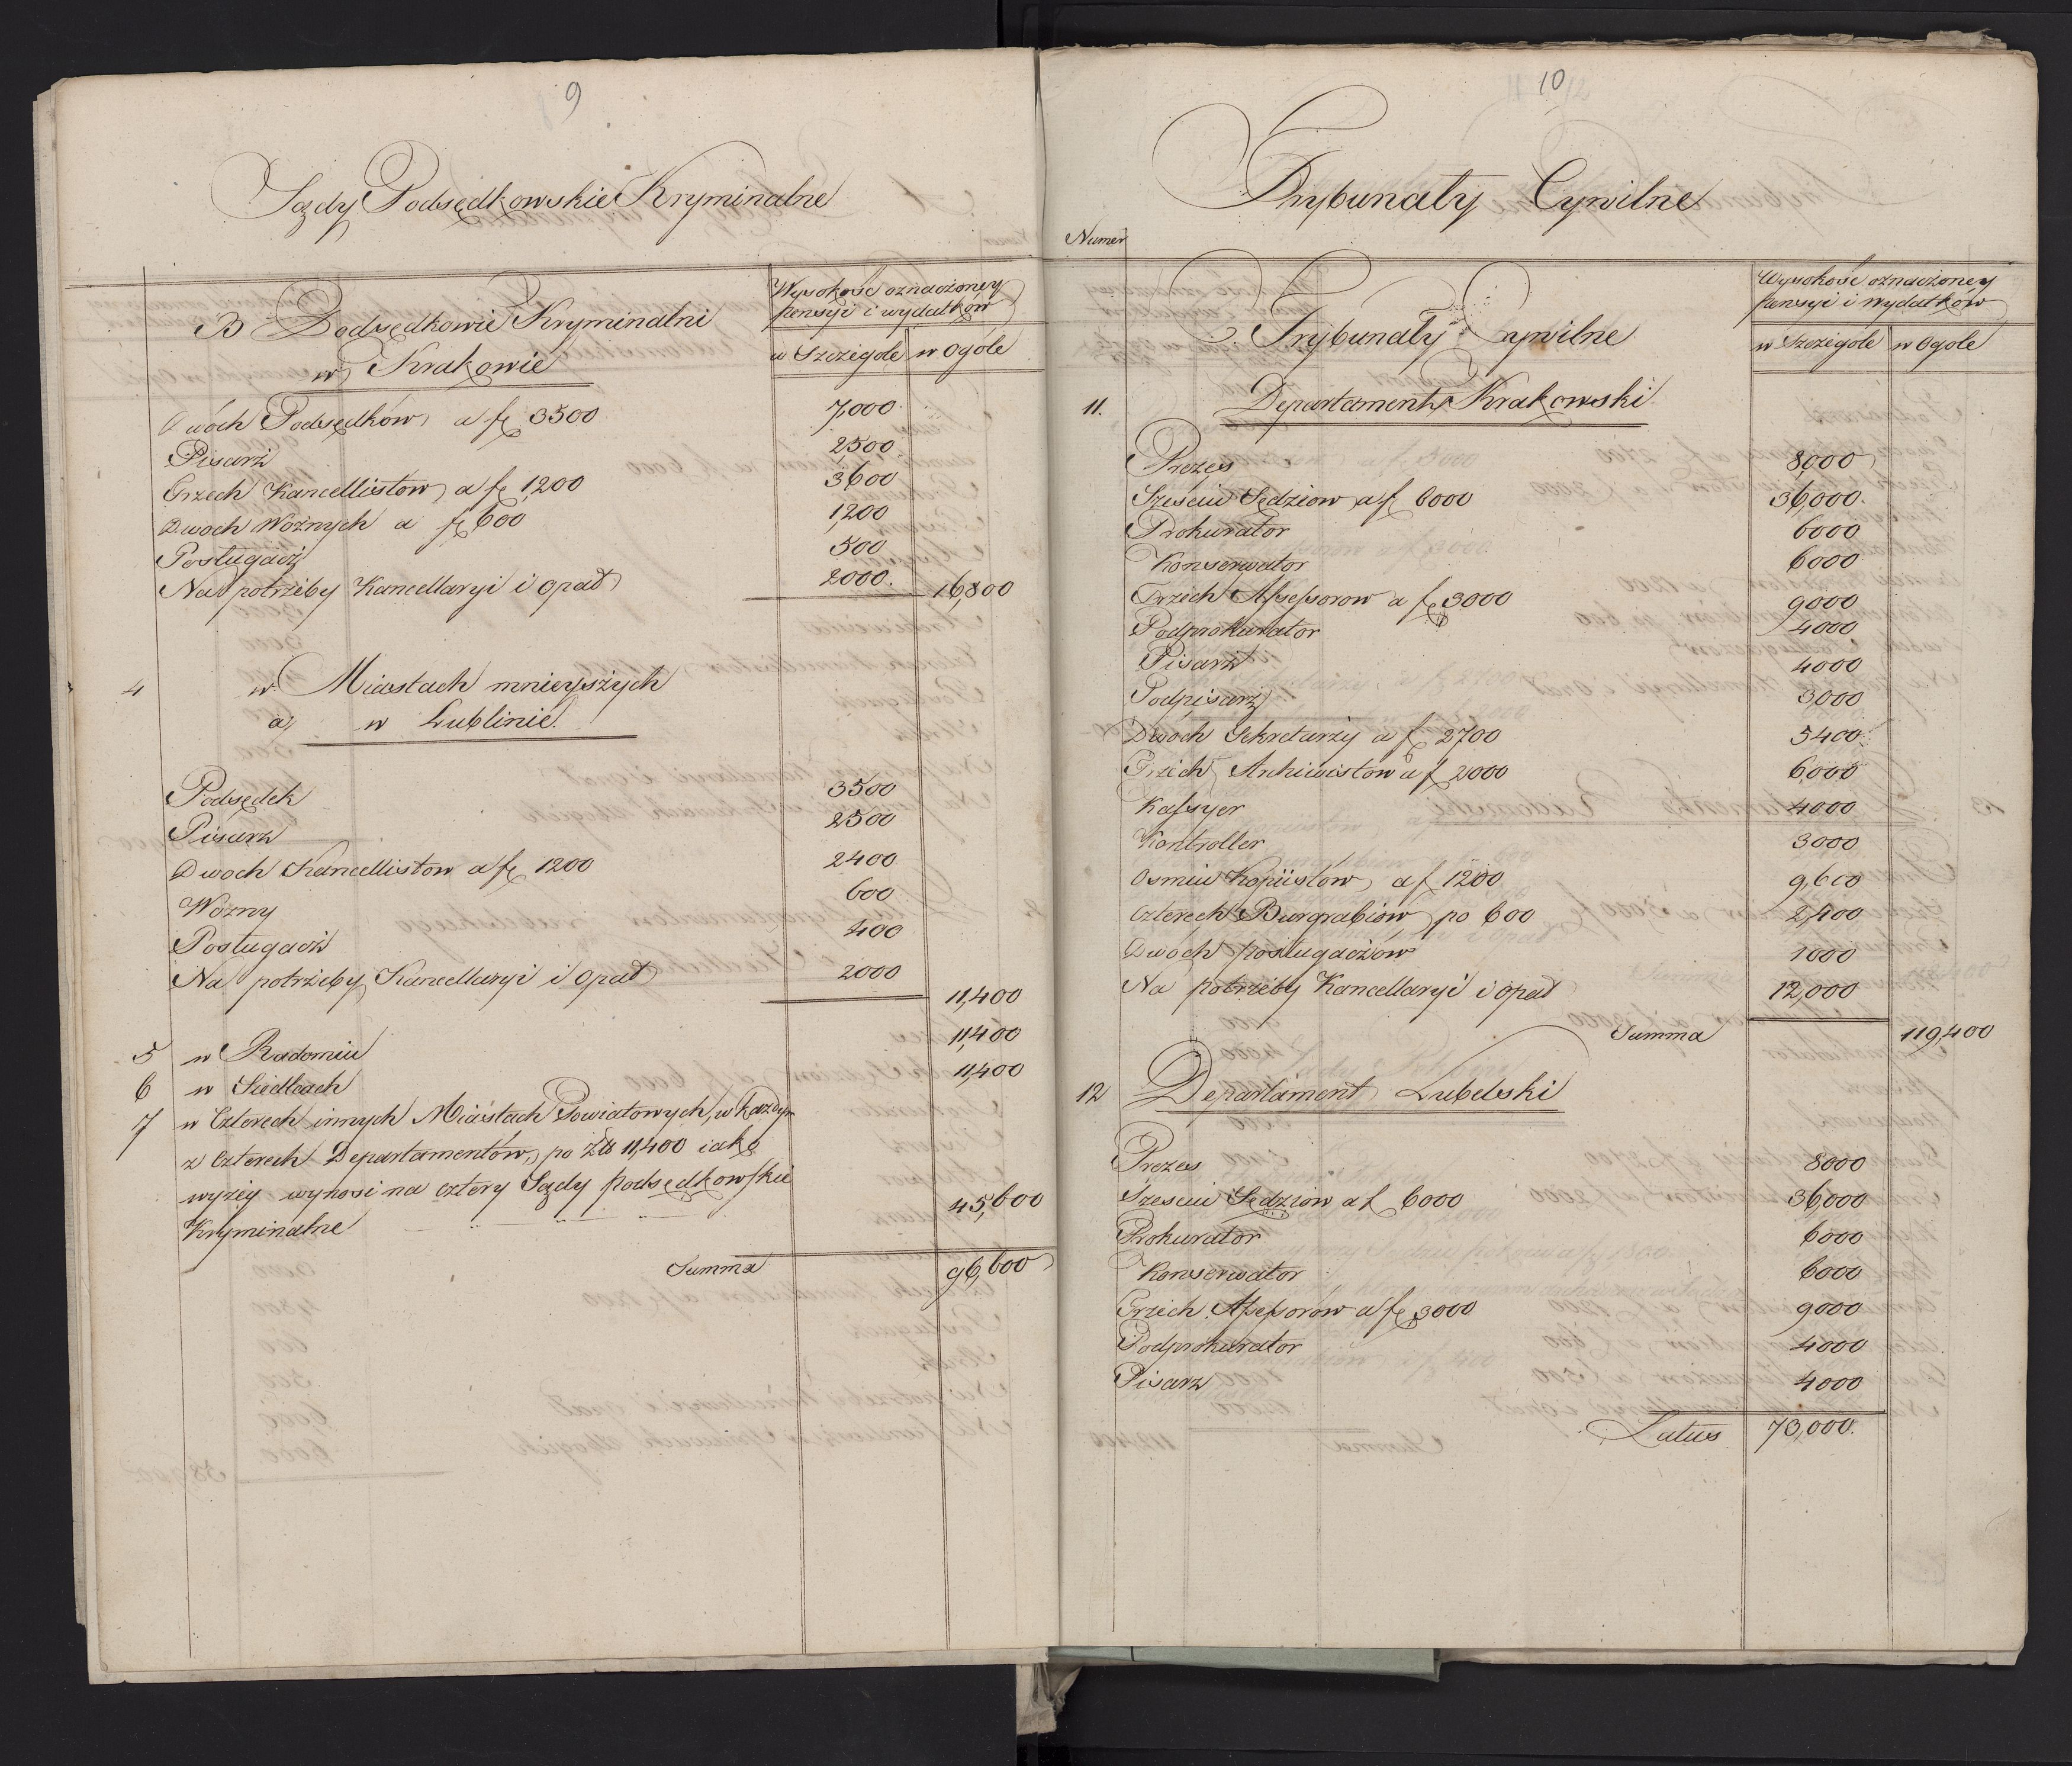 9
Sądy Podsędkowskie Kryminalne
Wysokość oznaczoney
pensyi i wydatków
w Szczegole w Ogóle
B Podsędkowie Kryminalni
w Krakowie
Dwóch Podsędków a f 3500 7,000
Pisarz 2,500
Trzech Kancellistow a f 1,200 3,600
Dwoch Woźnych a f 600 1,200
Posługacz 500
Na potrzeby Kancellaryi i opał 2000. 16,800
4 w Miastach mnieyszych
a, w Lublinie.
Podsędek 3500
Pisarz 2500
Dwoch Kancellistow a f 1200 2400
Wozny 600
Posługacz 400
Na potrzeby Kancellaryi i Opał 2000
11,400
5 w Radomiu 11,400
6 w Siedlcach 11,400
7 w Czterech innych Miastach Powiatowych, w każdym
z czterech Departamentów, po Zł 11,400 iako
wyżey wynosi na cztery Sądy podsędkowskie
Kryminalne 45,600
Summa 96,600
10
Trybunały Cywilne
Numer
Wysokość oznaczoney
pensyi i Wydatków
w Szczegole w Ogole
Trybunały Cywilne
11. Departament Krakowski
Prezes 8,000
Sześciu Sędziow a f 6000 36,000.
Prokurator 6000
Konserwator 6000
Trzech Assessorow a f 3000 9000
Podprokurator 4000
Pisarz 4000
Podpisarz 3,000
Dwóch Sekretarzy a f 2700 5400.
Trzech Archiwistow a f 2000 6,000
Kassyer 4000
Kontroller 3000
Osmiu Kopiistów a f 1200 9,600
Czterech Burgrabiów po 600 2,400
Dwóch posługaczów 1000
Na potrzeby Kancellaryi i opał 12,000
Summa 119,400
12 Departament Lubelski
Prezes 8000
Szesciu Sędziow a f 6000 36,000
Prokurator 6000
Konserwator 6000
Trzech Assessorow a f 3000 9000
Podprokurator 4000
Pisarz 4000
Latus 73,000.